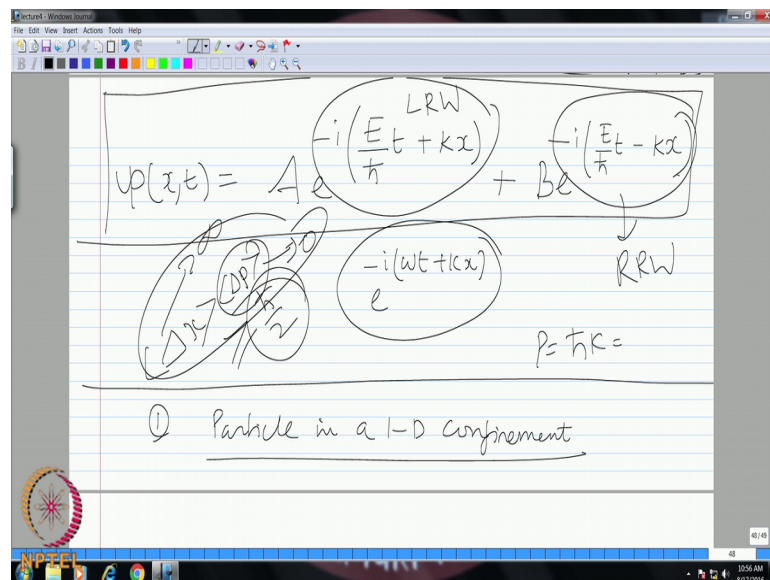 lecture4 - Windows Journal
File Edit View Insert Actions Tools Help
LRW
ψ(x,t) = A e^{-i(E/ħ t + kx)} + B e^{-i(E/ħ t - kx)}
RRW
Δx → ∞ (Δp) → 0
ħ/2
e^{-i(wt+kx)}
P = ħk =
① Particle in a 1-D confinement
48/49
48
NPTEL
10:56 AM